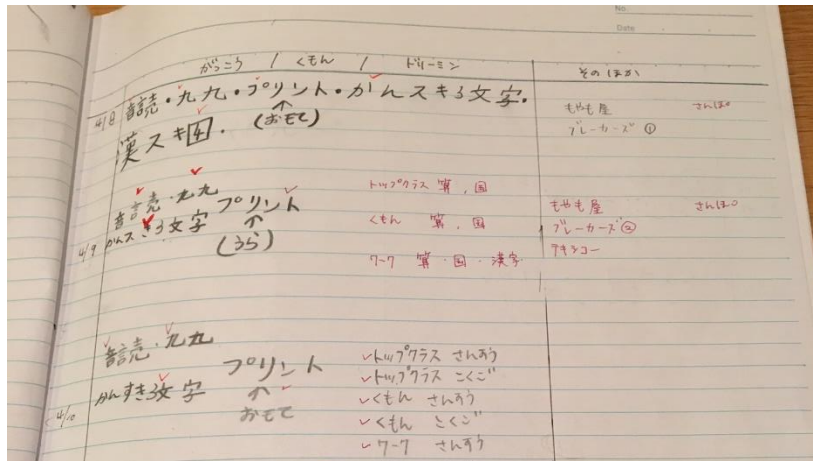 No.
Date
がっこう / くもん / ドリーミン
そのほか
4/8 音読・九九・プリント・かんスキ3文字・
↑
(おもて)
漢スキ4.
もやも屋 さんぽ
ブレーカーズ①
音読・九九 プリント
かんスきる文字 ↑
4/9 (うら)
トップクラス 算,国
くもん 算,国
ワーク 算・国・漢字
もやも屋 さんぽ
ブレーカーズ②
テキシコー
音読・九九
プリント
かんすき3文字 ↑
おもて
4/10
トップクラス さんすう
トップクラス こくご
くもん さんすう
くもん こくご
ワーク さんすう